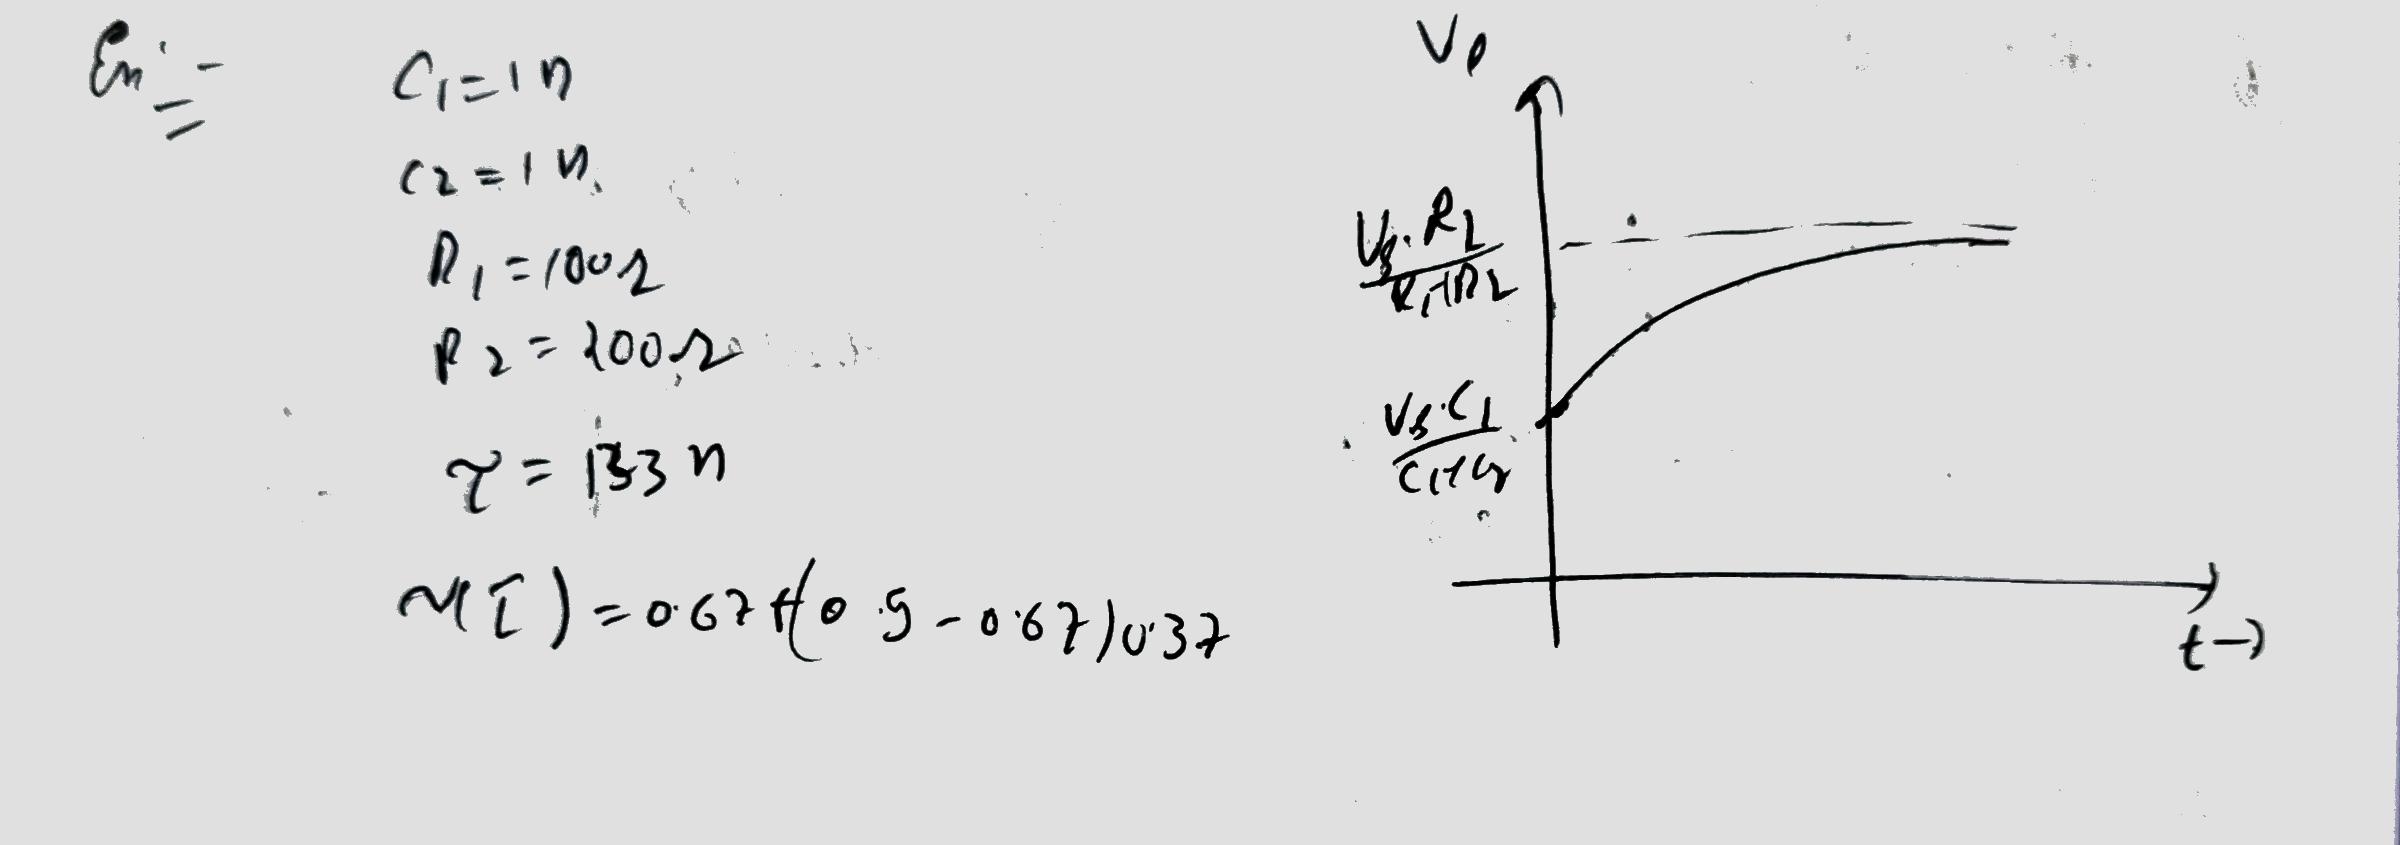 Ex:-
C1 = 1n
C2 = 1n
R1 = 100Ω
R2 = 200Ω
τ = 133n
v(τ) = 0.67 + (0.5 - 0.67)0.37
Vo
Vs.R2
R1+R2
Vs.C1
C1+C2
t→